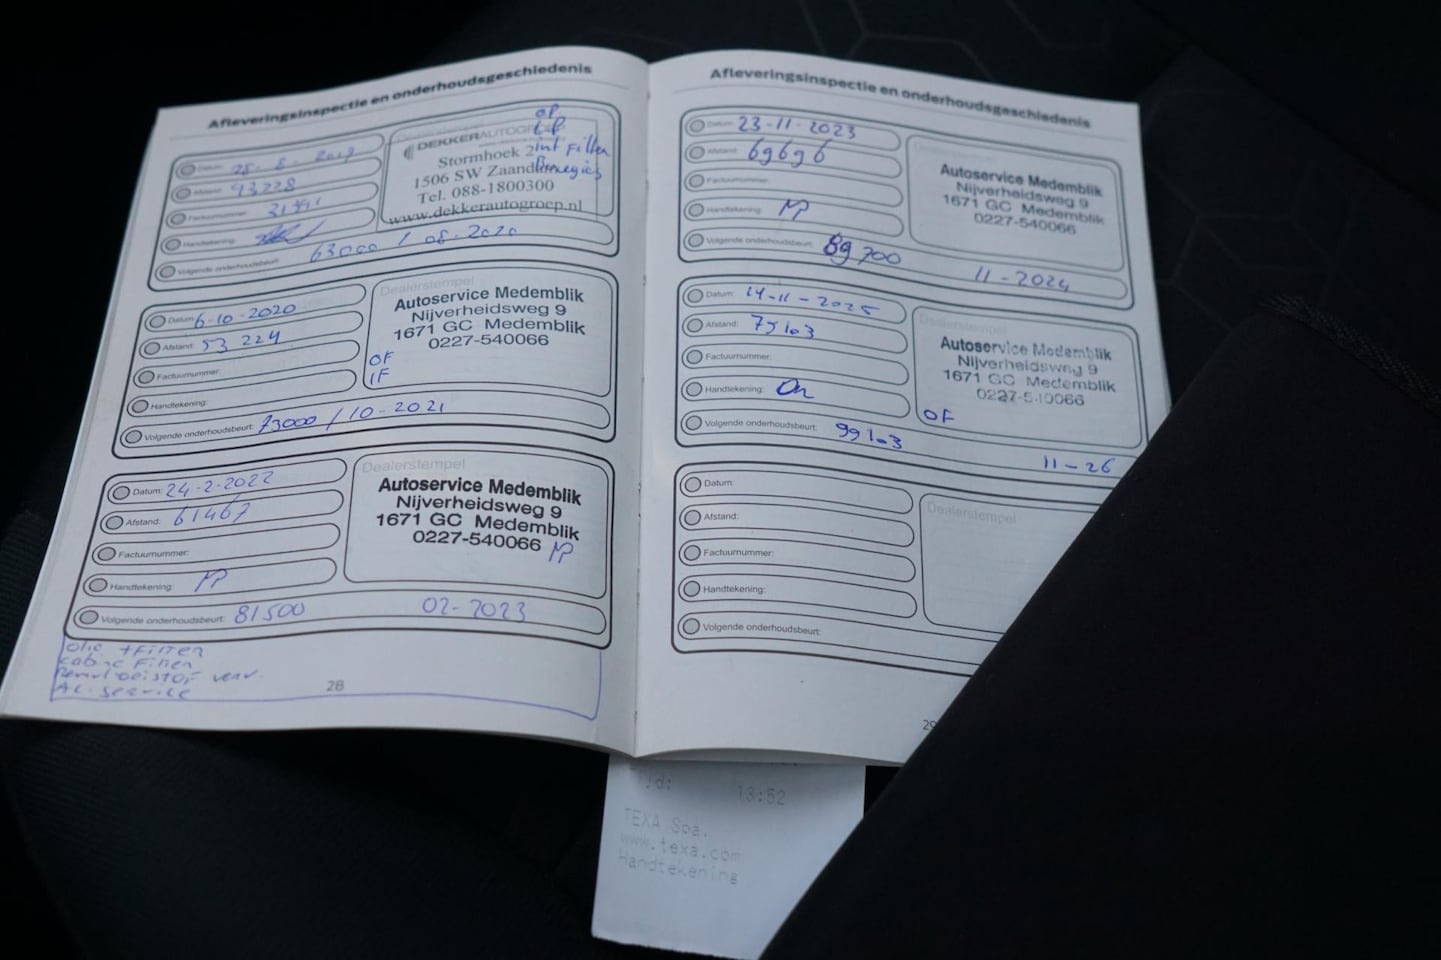 Afleveringsinspectie en onderhoudsgeschiedenis
Datum: 28-8-2019
Afstand: 43228
Factuurnummer:
Handtekening:
Volgende onderhoudsbeurt: 63000 / 08-2020
DEKKERAUTOGROEP
Stormhoek 2
1506 SW Zaandam
Tel. 088-1800300
www.dekkerautogroep.nl
OF
int Filter
Datum: 6-10-2020
Afstand: 53 224
Factuurnummer:
Handtekening:
Volgende onderhoudsbeurt: 73000 / 10-2021
Dealerstempel
Autoservice Medemblik
Nijverheidsweg 9
1671 GC Medemblik
0227-540066
OF
IF
Datum: 24-2-2022
Afstand: 61467
Factuurnummer:
Handtekening: MP
Volgende onderhoudsbeurt: 81500 02-2023
Dealerstempel
Autoservice Medemblik
Nijverheidsweg 9
1671 GC Medemblik
0227-540066 MP
olie + Filter
cabine Filter
Remvloeistof verv.
Ac-service
28
Afleveringsinspectie en onderhoudsgeschiedenis
Datum: 23-11-2023
Afstand: 69696
Factuurnummer:
Handtekening: MP
Volgende onderhoudsbeurt: 89700 11-2024
Dealerstempel
Autoservice Medemblik
Nijverheidsweg 9
1671 GC Medemblik
0227-540066
Datum: 14-11-2025
Afstand: 79103
Factuurnummer:
Handtekening:
Volgende onderhoudsbeurt: 99103 11-26
Dealerstempel
Autoservice Medemblik
Nijverheidsweg 9
1671 GC Medemblik
0227-540066
OF
Datum:
Afstand:
Factuurnummer:
Handtekening:
Volgende onderhoudsbeurt:
Dealerstempel
29
Tijd: 13:52
TEXA Spa.
www.texa.com
Handtekening